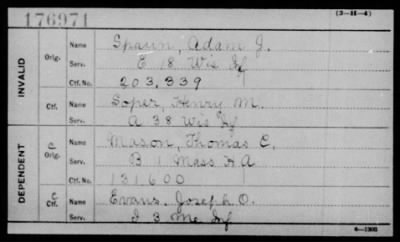 176971
(3-II-4)
INVALID
Orig.
Name Spaun, Adam J.
Serv. E 18 Wis Inf
Ctf. No. 203,339
Ctf.
Name Soper, Henry M.
Serv. A 38 Wis Inf
DEPENDENT
C Orig.
Name Mason, Thomas C.
Serv. B 1 Mass H A
Ctf. No. 131,600
C Ctf.
Name Evans, Joseph O.
Serv. I 3 Me Inf